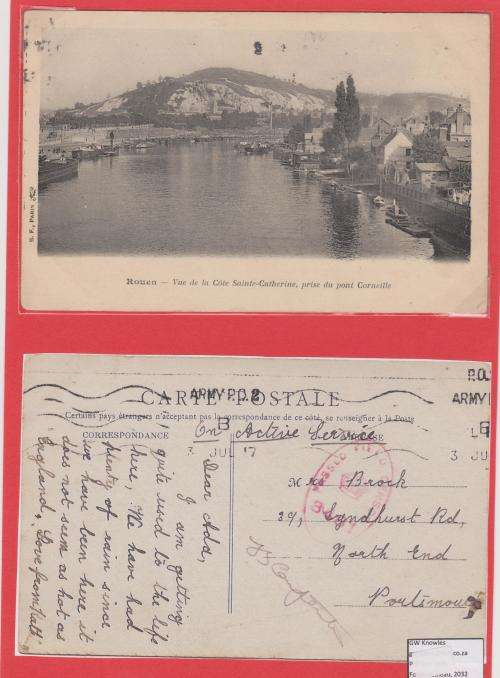 B. F., PARIS
Rouen – Vue de la Côte Sainte-Catherine, prise du pont Corneille
CARTE POSTALE
ARMY P.O. 2
P.O.
ARMY
Certains pays étrangers n'acceptant pas la correspondance de ce côté, se renseigner à la Poste
CORRESPONDANCE
B
JUL 17
3 JU
On Active Service
PASSED
Mrs Brock
39, Lyndhurst Rd,
North End
Portsmouth
Dear Ada,
I am getting
quite used to the life
here. We have had
plenty of rain since
we have been here it
does not seem as hot as
England. Love from
GW Knowles
co.za
2032